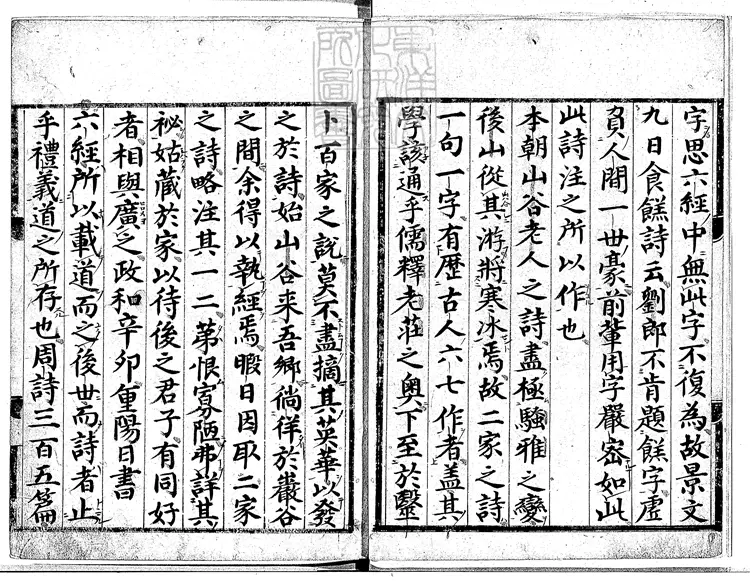 字思六經中無此字不復為故景文
九日食餻詩云劉郎不肯題餻字虛
負人間一世豪前軰用字嚴密如此
此詩注之所以作也
本朝山谷老人之詩盡極騷雅之變
後山從其游將寒冰焉故二家之詩
一句一字有歷古人六七作者盖其
學該通乎儒釋老莊之奥下至於毉
卜百家之說莫不盡摘其英華以發
之於詩始山谷来吾鄉徜徉於巖谷
之間余得以執經焉暇日因取二家
之詩略注其一二苐恨寡陋弗詳其
祕姑藏於家以待後之君子有同好
者相與廣之政和辛卯重陽日書
六經所以載道而之後世而詩者止
乎禮義道之所存也周詩三百五篇